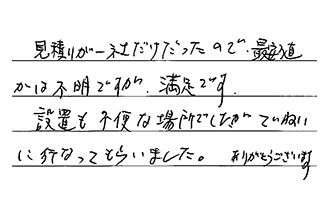 見積りが一社だけだったので、最安値
かは不明ですが、満足です。
設置も不便な場所でしたがていねい
に行なってもらいました。 ありがとうございます